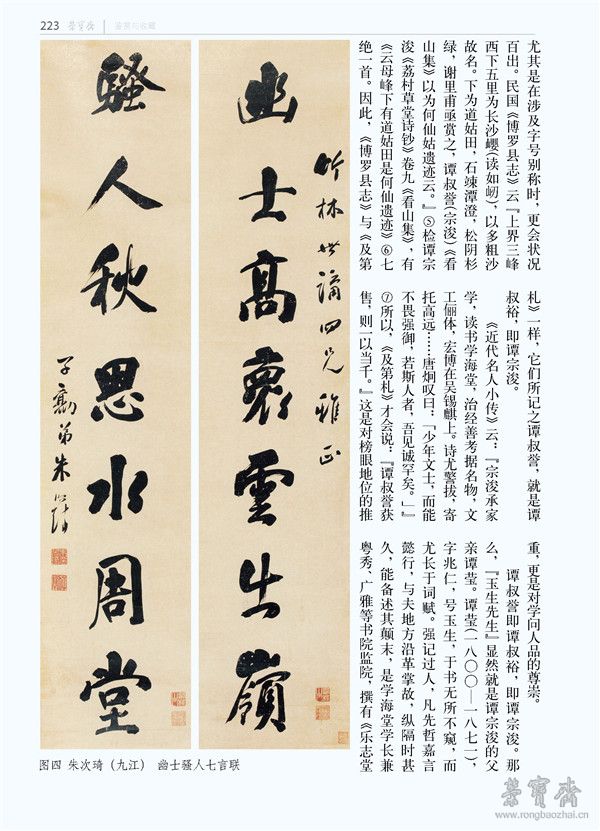 223 榮寶齋 鉴赏与收藏
尤其是在涉及字号别称时，更会状况
百出。民国《博罗县志》云『上界三峰
西下五里为长沙(读如屻)，以多粗沙
故名。下为道姑田，石竦潭澄，松阴杉
绿，谢里甫亟赏之，谭叔誉(宗浚)《看
山集》以为何仙姑遗迹云。』⑤检谭宗
浚《荔村草堂诗钞》卷九《看山集》，有
《云母峰下有道姑田是何仙遗迹》⑥七
绝一首。因此，《博罗县志》与《及第
札》一样，它们所记之谭叔誉，就是谭
叔裕，即谭宗浚。
《近代名人小传》云：『宗浚承家
学，读书学海堂，治经善考据名物，文
工俪体，宏博在吴锡麒上。诗尤警拔，寄
托高远……唐炯叹曰：「少年文士，而能
不畏强御，若斯人者，吾见诚罕矣。」』
⑦所以，《及第札》才会说：『谭叔誉获
售，则一以当千。』这是对榜眼地位的推
重，更是对学问人品的尊崇。
谭叔誉即谭叔裕，即谭宗浚。那
么，『玉生先生』显然就是谭宗浚的父
亲谭莹。谭莹(一八〇〇—一八七一)，
字兆仁，号玉生，于书无所不窥，而
尤长于词赋。强记过人，凡先哲嘉言
懿行，与夫地方沿革掌故，纵隔时甚
久，能备述其颠末，是学海堂学长兼
粤秀、广雅等书院监院，撰有《乐志堂
竹林世講四兄雅正
幽士高褱雲生嶺
騷人秋思水周堂
子勷弟朱次琦
图四 朱次琦（九江） 幽士骚人七言联
榮寶齋
www.rongbaozhai.cn